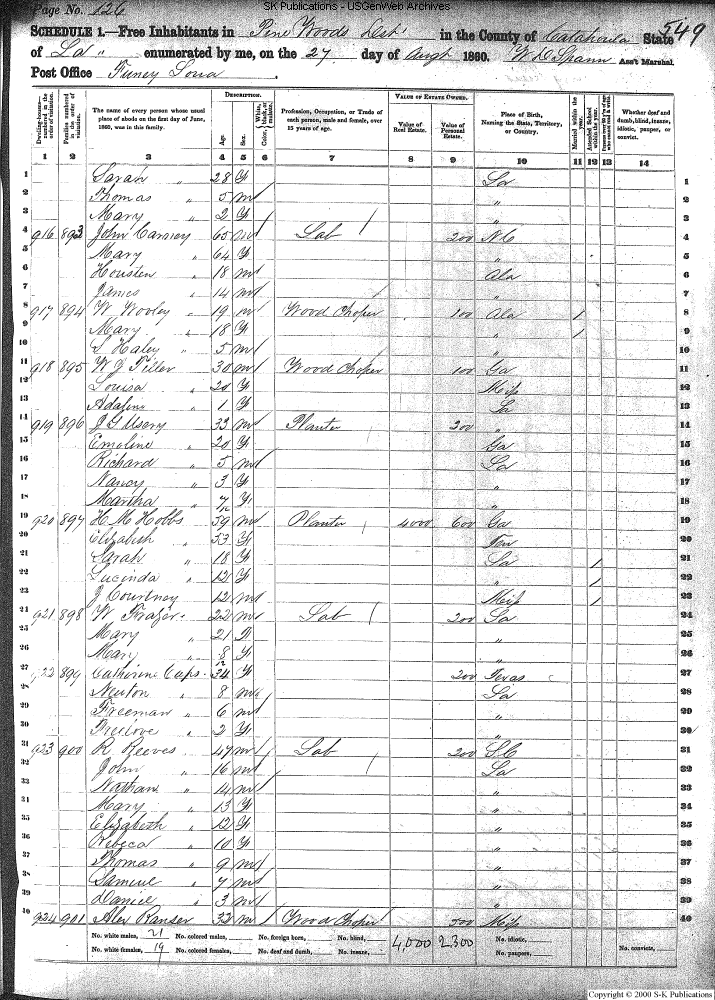 SK Publications - USGenWeb Archives
Page No. 126
549
SCHEDULE 1.—Free Inhabitants in Pine Woods Dist in the County of Catahoula State
of La " enumerated by me, on the 27 day of Augt 1860. W D Spann Ass't Marshal.
Post Office
Dwelling-houses—numbered in the order of visitation.
Families numbered in the order of visitation.
The name of every person whose usual place of abode on the first day of June, 1860, was in this family.
DESCRIPTION.
Age.
Sex.
Color, White, black, or mulatto.
Profession, Occupation, or Trade of each person, male and female, over 15 years of age.
VALUE OF ESTATE OWNED.
Value of Real Estate.
Value of Personal Estate.
Place of Birth, Naming the State, Territory, or Country.
Married within the year.
Attended School within the year.
Persons over 20 y'rs of age who cannot read & write.
Whether deaf and dumb, blind, insane, idiotic, pauper, or convict.
1 2 3 4 5 6 7 8 9 10 11 12 13 14
1 Sarah " 28 f La 1
2 Thomas " 5 m " 2
3 Mary " 2 f " 3
4 916 893 John Carney 65 m Lab 200 N C 4
5 Mary " 64 f " 5
6 Housten " 18 m Ala 6
7 James " 14 m " 7
8 917 894 W Wooley " 19 m Wood Choper 100 Ala 1 8
9 Mary " 18 f " 1 9
10 S Haley " 5 m 10
11 918 895 W J Tiller 30 m Wood Choper 100 Ga 11
12 Louisa " 20 f Miss 12
13 Adaline " 1 f La 13
14 919 896 J G Usery 33 m Planter 200 " 14
15 Emoline " 20 f Ga 15
16 Richard " 5 m La 16
17 Nancy " 3 f " 17
18 Martha " 7/12 f " 18
19 920 897 H M Hobbs 59 m Planter 4000 600 Ga 19
20 Elizabeth " 53 f Ten 20
21 Sarah " 18 f La 1 21
22 Lucinda " 12 f " 1 22
23 J Courtney 12 m Miss 1 23
24 921 898 W Frazer 22 m Lab 200 La 24
25 Mary " 21 f " 25
26 Mary " 8/12 f " 26
27 922 899 Catherine Cups 34 f 200 Texas 27
28 Newton " 8 m La 28
29 Freeman " 6 m " 29
30 Freelove " 2 f " 30
31 923 900 R Reeves 47 m Lab 200 S C 31
32 John " 16 m La 32
33 Nathan " 14 m 33
34 Mary " 13 f " 34
35 Elizabeth " 12 f " 35
36 Rebeca " 10 f " 36
37 Thomas " 9 m " 37
38 Samuel " 7 m " 38
39 Daniel " 3 m " 39
40 924 901 Alex Ranser 32 m Wood Choper 500 Miss 40
No. white males, 21 No. colored males, No. foreign born, No. blind, 4,000 2300 No. idiotic,
No. white females, 19 No. colored females, No. deaf and dumb, No. insane, No. paupers, No. convicts,
Copyright © 2000 S-K Publications